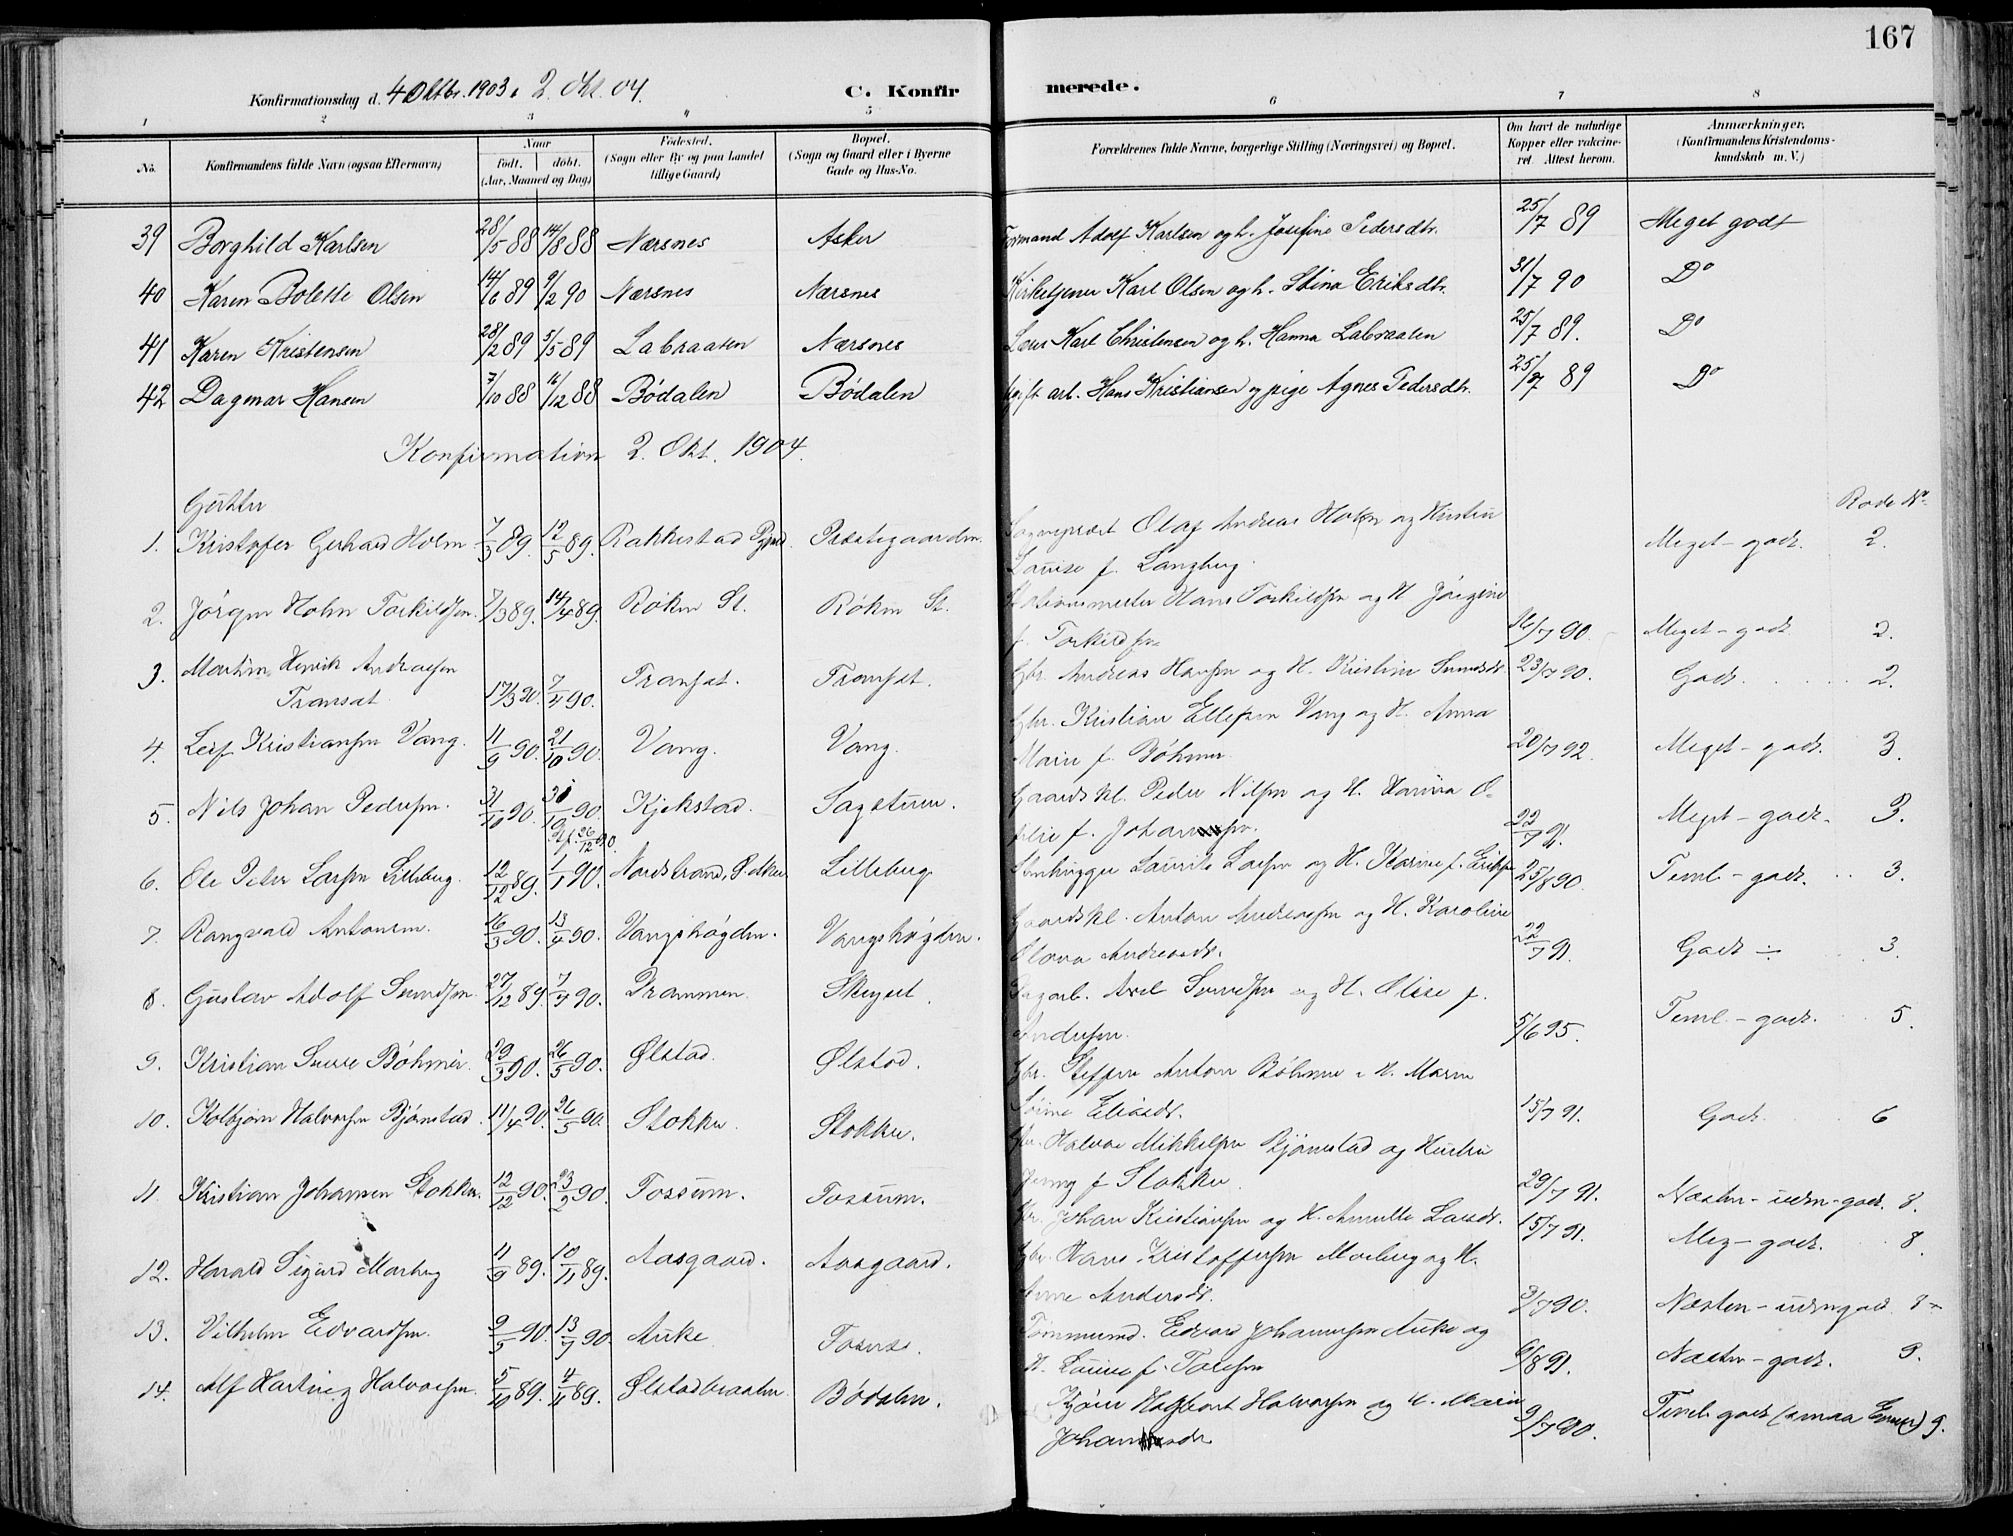 167
Konfirmationsdag d. 4 Oktbr. 1903 & 2. Okt. 04.
C. Konfirmerede.
1 2 3 4 5 6 7 8
No.
Konfirmandens fulde Navn (ogsaa Efternavn)
Naar
født. døbt.
(Aar, Maaned og Dag)
Fødested.
(Sogn eller By og paa Landet tillige Gaard)
Bopæl.
(Sogn og Gaard eller i Byerne Gade og Hus-No.
Forældrenes fulde Navne, borgerlige Stilling (Næringsvei) og Bopæl.
Om havt de naturlige Kopper eller vakcineret. Attest herom.
Anmærkninger.
(Konfirmandens Kristendomskundskab m. V.)
39 Borghild Karlsen 28/5 88 14/8 88 Nærsnes Asker Formand Adolf Karlsen og h. Josefine Pedersdtr. 25/7 89 Meget godt
40 Karen Bolette Olsen 14/6 89 9/2 90 Nærsnes Nærsnes Kirketjener Karl Olsen og h. Stina Eriksdtr. 31/7 90 Do
41 Karen Kristensen 28/2 89 5/5 89 Labraaten Nærsnes Karl Christensen og h. Hanna Labraaten 25/7 89. Do
42 Dagmar Hansen 7/10 88 16/12 88 Bødalen Bødalen ugift arb. Hans Kristiansen og pige Agnes Pedersdtr. 25/7 89 Do
Konfirmation 2. Okt. 1904.
Gutter
Rode No.
1. Kristofer Gerhard Holm 7/3 89. 12/5 89. Rakkestad Prgd. Præstegaarden. Sogneprest Olaf Andreas Holm og Hustru Meget-godt. 2.
Louise f. Langberg.
2. Jørgen Holm Torkildsen. 7/3 89. 14/4 89. Røken St. Røken St. Stationsmester Hans Torkildsen og H. Jørgine
f. Torkildsen 16/7 90. Meget-godt 2.
3. Martin Henrik Andreasen
Transet 17/3 90. 7/4 90. Transet. Transet. Gbr. Andreas Hansen og H. Kristine 23/7 90. Godt 2.
4. Leif Kristiansen Vang. 11/9 90. 21/10 90. Vang. Vang. Gbr. Kristian Ellefsen Vang og H. Anna
Marie f. Bøhmer 20/7 92. Meget-godt 3.
5. Nils Johan Pedersen. 31/10 90. 31/10 90. 26/12 90. Kjekstad. Sagstuen. Gaardskl. Peder Nilsen og H. Hanna O-
f. Johansen. 22/7 91. Meget-godt. 3.
6. Ole Peter Larsen Lilleberg. 12/12 89. 1/1 90. Nordstrand, Lilleberg Stenhugger Laurits Larsen og H. Karine f. 25/8 90. Teml-godt. 3.
7. Rangvald Antonsen. 16/3 90. 13/4 90. Vangshøgden. Vangshøgden. Gaardskl. Anton Andreassen og H. Karoline
Olava Andreasdt. 22/7 91. Godt 3.
8. Gustav Adolf Svendsen. 27/12 89. 7/4 90. Drammen. Sagarb. Axel Svendsen og H. Olise f.
Andersen. 5/6 95. Teml-godt. 5.
9. Kristian Sverre Bøhmer. 29/3 90. 26/5 90. Ølstad. Ølstad. Gbr. Steffen Anton Bøhmer & H. Maren
Eliasdt. 15/7 91. Godt 6
10. Kolbjørn Halvorsen Bjørnstad. 11/4 90. 26/5 90. Stokker. Stokker. Gbr. Halvor Mikkelsen Bjørnstad og Hustru
Jenny f. Stokker. 29/7 91. Næsten-uden-godt. 8.
11. Kristian Johansen Stokker. 12/12 90. 23/2 90. Tossum. Tossum. Gbr. Johan Kristiansen og H. Annette Larsdt. 15/7 91. Meg-godt. 8.
12. Harald Sigurd Morberg 11/9 89. 10/11 89. Aasgaard. Aasgaard. Gbr. Hans Kristoffersen Morberg og H.
Anne Andersdt. 3/7 90. Næsten-uden god 8
13. Vilhelm Edvardsen. 9/5 90. 13/7 90. Auke Tømmermd. Edvard Johannessen Auke og
H. Lovise f. 6/8 91. Næsten-godt. 9.
14. Alf Harting Halvorsen. 5/10 89. 4/11 89. Ølstadbraaten. Bødalen. Halvorsen og H. Marie
Johannesdt. 9/7 90. Teml. godt 9.